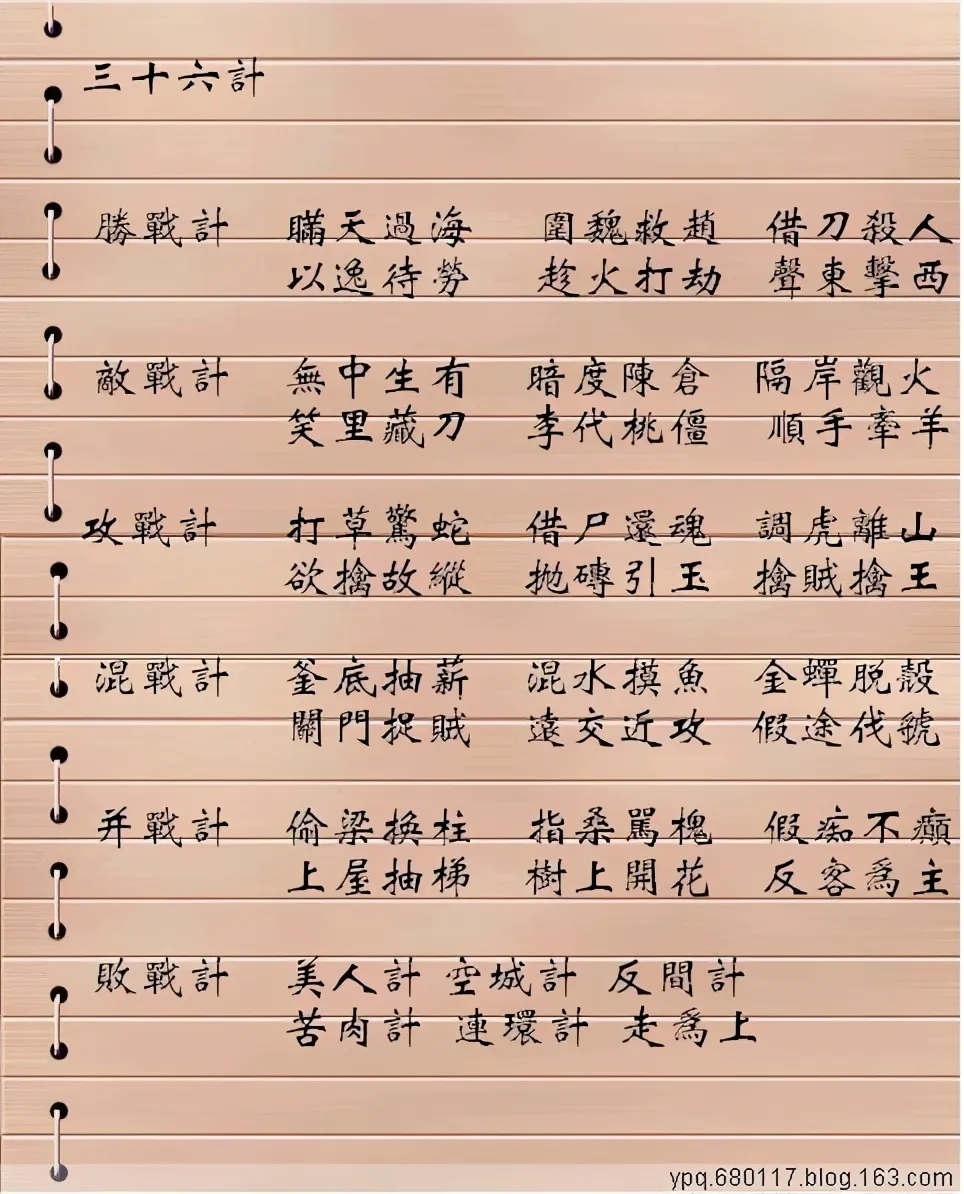 三十六計
勝戰計 瞞天過海 圍魏救趙 借刀殺人
以逸待勞 趁火打劫 聲東擊西
敵戰計 無中生有 暗度陳倉 隔岸觀火
笑里藏刀 李代桃僵 順手牽羊
攻戰計 打草驚蛇 借尸還魂 調虎離山
欲擒故縱 拋磚引玉 擒賊擒王
混戰計 釜底抽薪 混水摸魚 金蟬脱殼
關門捉賊 遠交近攻 假途伐虢
并戰計 偷梁換柱 指桑罵槐 假痴不癲
上屋抽梯 樹上開花 反客爲主
敗戰計 美人計 空城計 反間計
苦肉計 連環計 走爲上
ypq.680117.blog.163.com